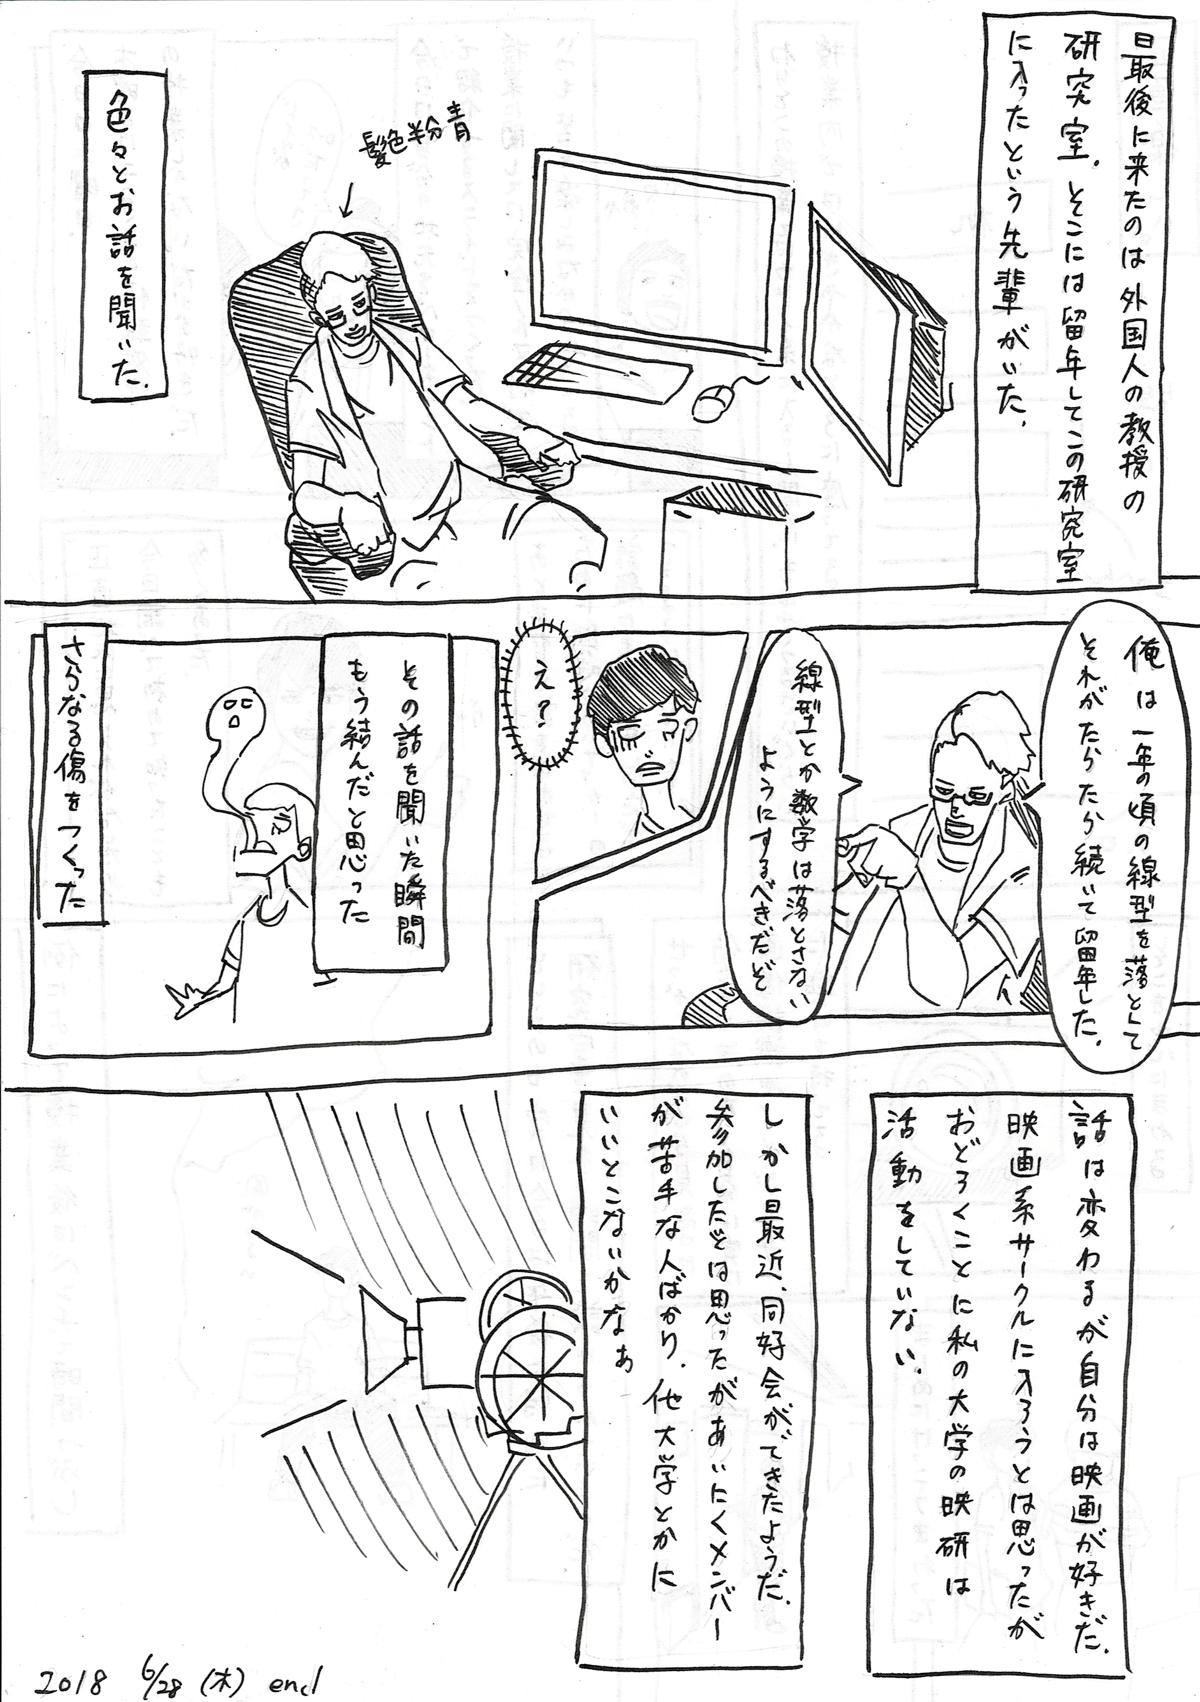 最後に来たのは外国人の教授の
研究室、そこには留年してこの研究室
に入ったという先輩がいた。
髪色半分青
色々とお話を聞いた。
俺は一年の頃の線型を落として
それがたらたら続いて留年した。
線型とか数学は落とさない
ようにするべきだぞ
え?
その話を聞いた瞬間
もう結んだと思った
さらなる傷をつくった
話は変わるが自分は映画が好きだ。
映画系サークルに入ろうとは思ったが
おどろくことに私の大学の映研は
活動をしていない。
しかし最近、同好会ができたようだ。
参加したいとは思ったがあいにくメンバー
が苦手な人ばかり。他大学とかに
いいとこないかなぁ
2018 6/28 (木) end